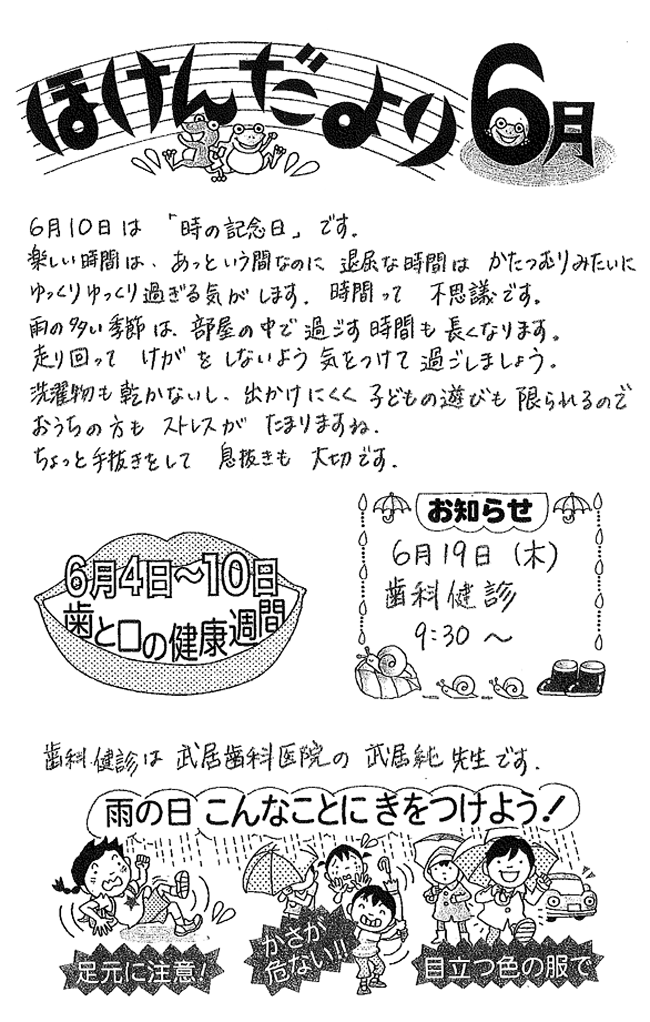 ほけんだより 6月
6月10日は 「時の記念日」です.
楽しい時間は、あっという間なのに 退屈な時間は かたつむりみたいに
ゆっくりゆっくり過ぎる気がします. 時間って 不思議です。
雨の多い季節は、部屋の中で過ごす時間も長くなります。
走り回って けがをしないよう気をつけて過ごしましょう。
洗濯物も乾かないし、出かけにくく子どもの遊びも限られるので
おうちの方も ストレスが たまりますね.
ちょっと手抜きをして 息抜きも 大切です.
6月4日〜10日
歯と口の健康週間
お知らせ
6月19日(木)
歯科健診
9:30 〜
歯科健診は 武居歯科医院の 武居純先生です.
雨の日 こんなことに きをつけよう!
足元に注意!
かさが
危ない!!
目立つ色の服で